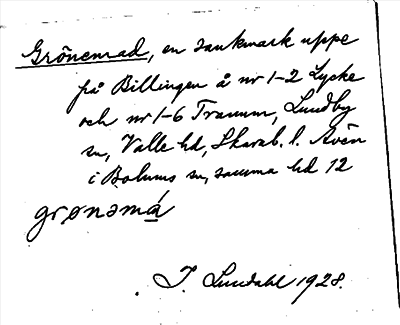 Grönemad, en sankmark uppe
på Billingen å nr 1-2 Lycke
och nr 1-6 Tranum, Lundby
sn, Valle hd, Skarab. l. Även
i Bolums sn, samma hd 12
grønəmá
J. Lundahl 1928.